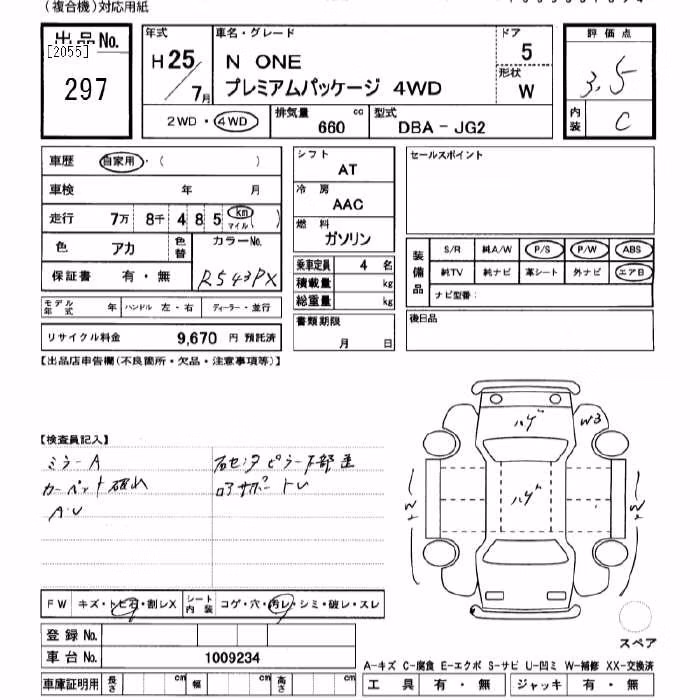 (複合機)対応用紙
出品No.
[2055]
297
年式
H25/7月
車名・グレード
N ONE
プレミアムパッケージ 4WD
ドア
5
形状
W
評価点
3.5
内装
C
2WD・4WD
排気量 cc
660
型式
DBA-JG2
車歴 自家用・( )
車検 年 月
走行 7万 8千 4 8 5 km マイル( )
色 アカ 色替 カラーNo.
R543PX
保証書 有・無
モデル年式 年 ハンドル 左・右 ディーラー・並行
リサイクル料金 9,670 円 預託済
シフト
AT
冷房
AAC
燃料
ガソリン
乗車定員 4 名
積載量 kg
総重量 kg
書類期限
月 日
セールスポイント
装備品
S/R 純A/W P/S P/W ABS
純TV 純ナビ 革シート 外ナビ エアB
ナビ型番:
後日品
【出品店申告欄(不良箇所・欠品・注意事項等)】
【検査員記入】
ミラーA
カーペット破れ
A・U
右センタピラー下部歪
ロアサポートU
ハゲ
W3
ハゲ
W2
スペア
FW キズ・トビ石・割レX シート内装 コゲ・穴・汚レ・シミ・破レ・スレ
登録No.
車台No. 1009234
車庫証明用 長さ cm 幅 cm 高さ cm
A-キズ C-腐食 E-エクボ S-サビ U-凹ミ W-補修 XX-交換済
工具 有・無 ジャッキ 有・無